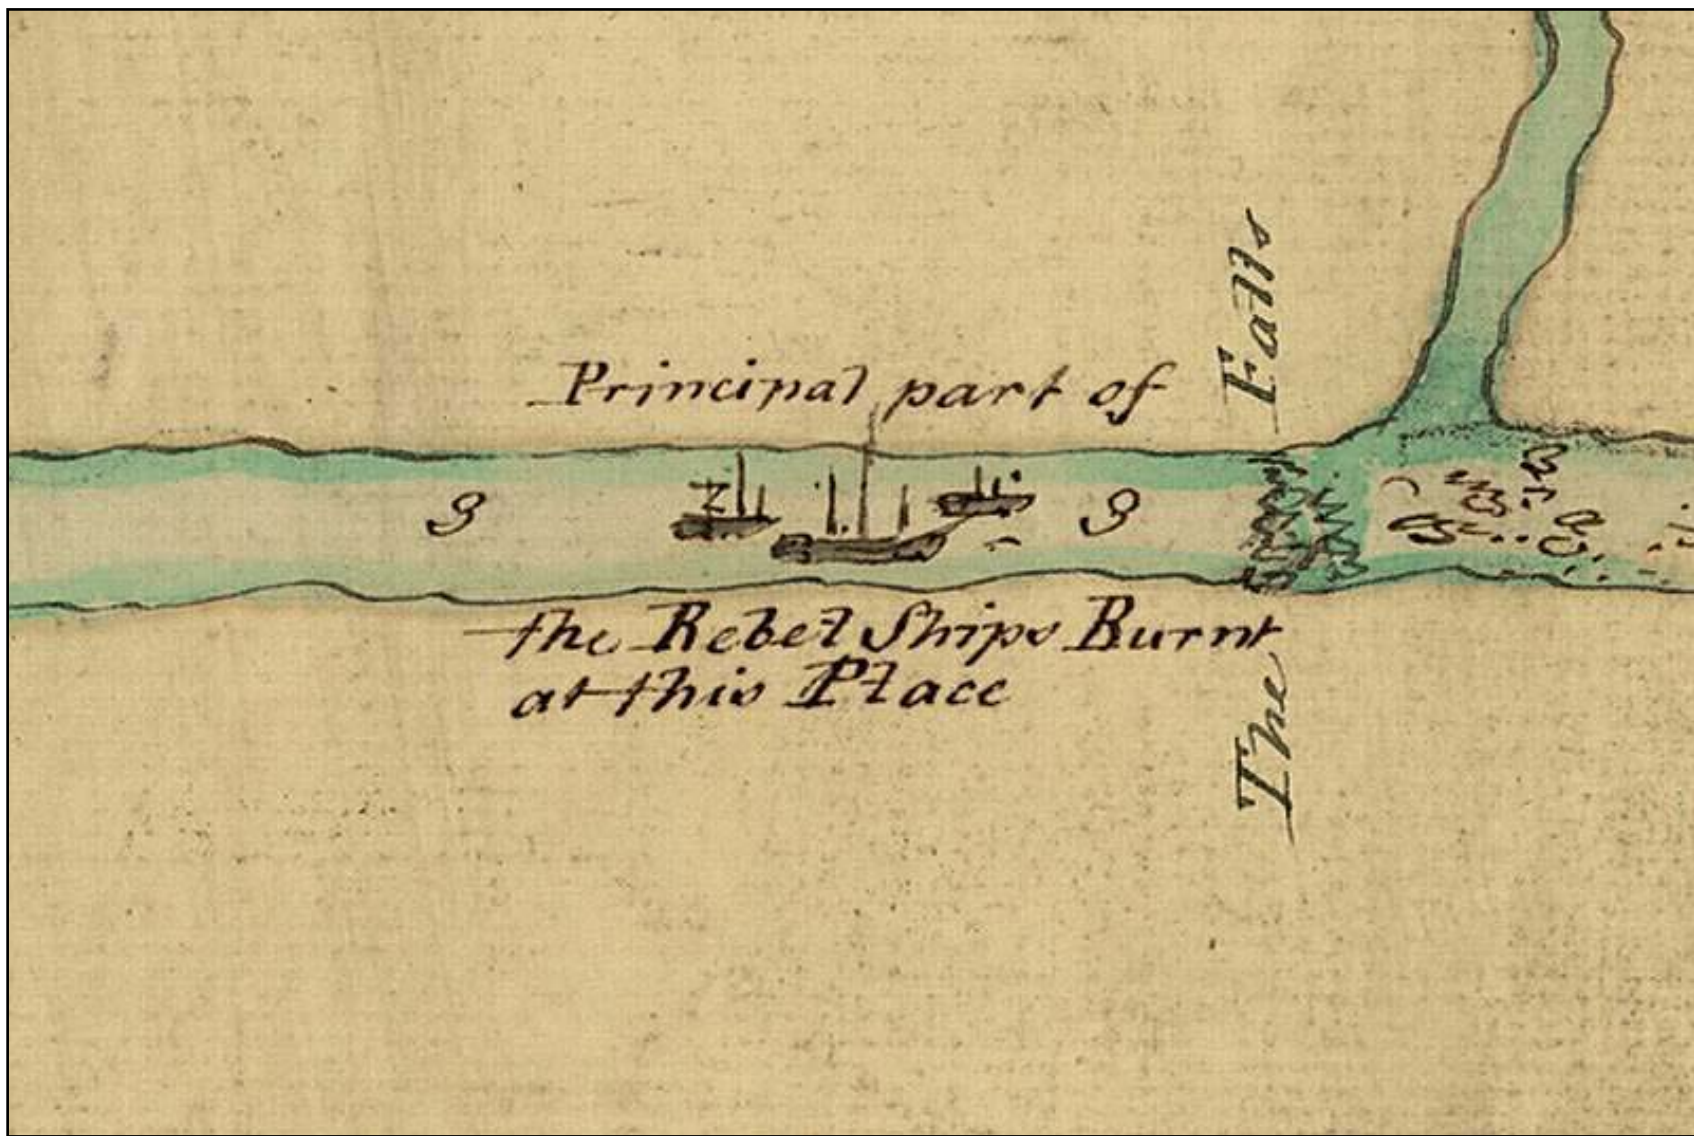 Principal part of
9 9
the Rebel Ships Burnt
at this Place
The Falls